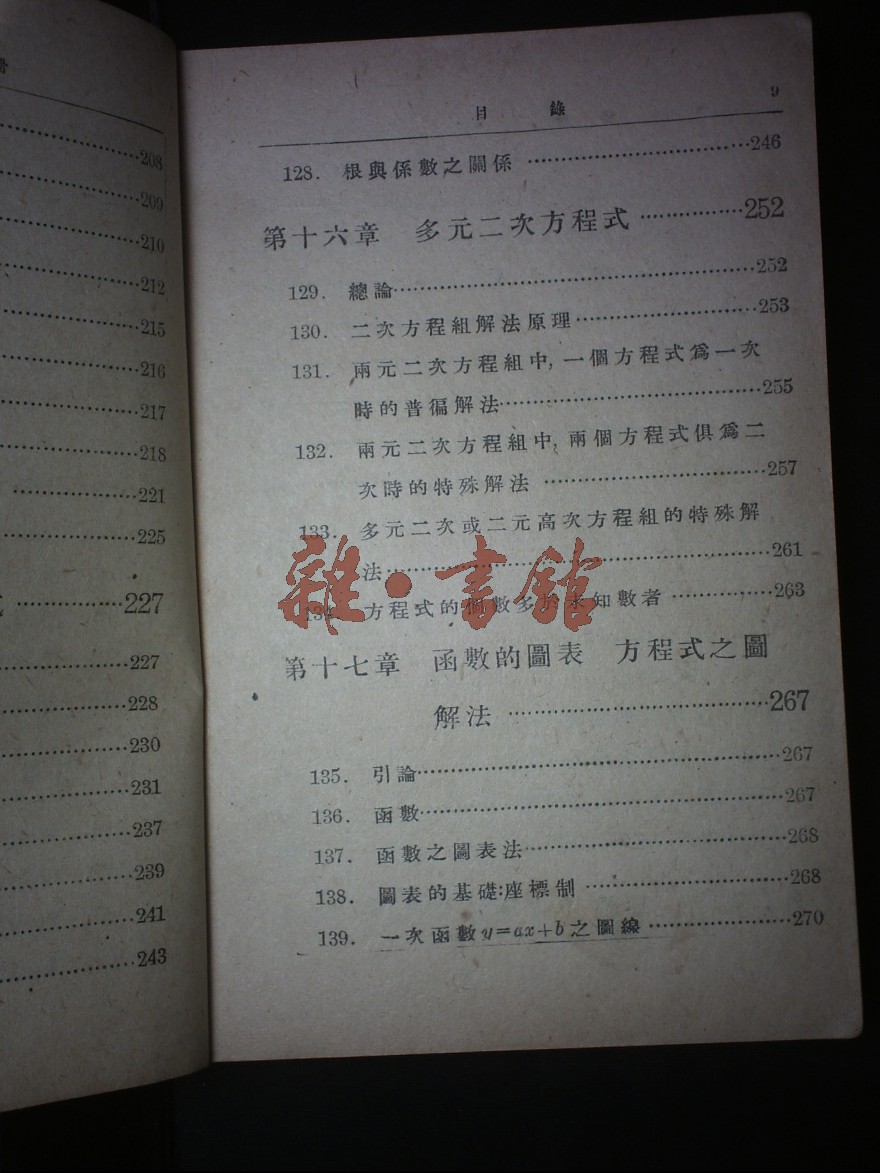 208
209
210
212
215
216
217
218
221
225
227
227
228
230
231
237
239
241
243
目錄 9
128. 根與係數之關係 ……………………246
第十六章 多元二次方程式 ……………252
129. 總論……………………………………252
130. 二次方程組解法原理……………………253
131. 兩元二次方程組中, 一個方程式爲一次
時的普徧解法……………………………255
132. 兩元二次方程組中, 兩個方程式俱爲二
次時的特殊解法 ………………………257
133. 多元二次或二元高次方程組的特殊解
法……………………………………261
134. 方程式的個數多於未知數者 ……………263
雜·書館
第十七章 函數的圖表 方程式之圖
解法 ……………………………267
135. 引論……………………………………267
136. 函數……………………………………267
137. 函數之圖表法……………………………268
138. 圖表的基礎:座標制 ……………………268
139. 一次函數 y=ax+b 之圖線 ………………270